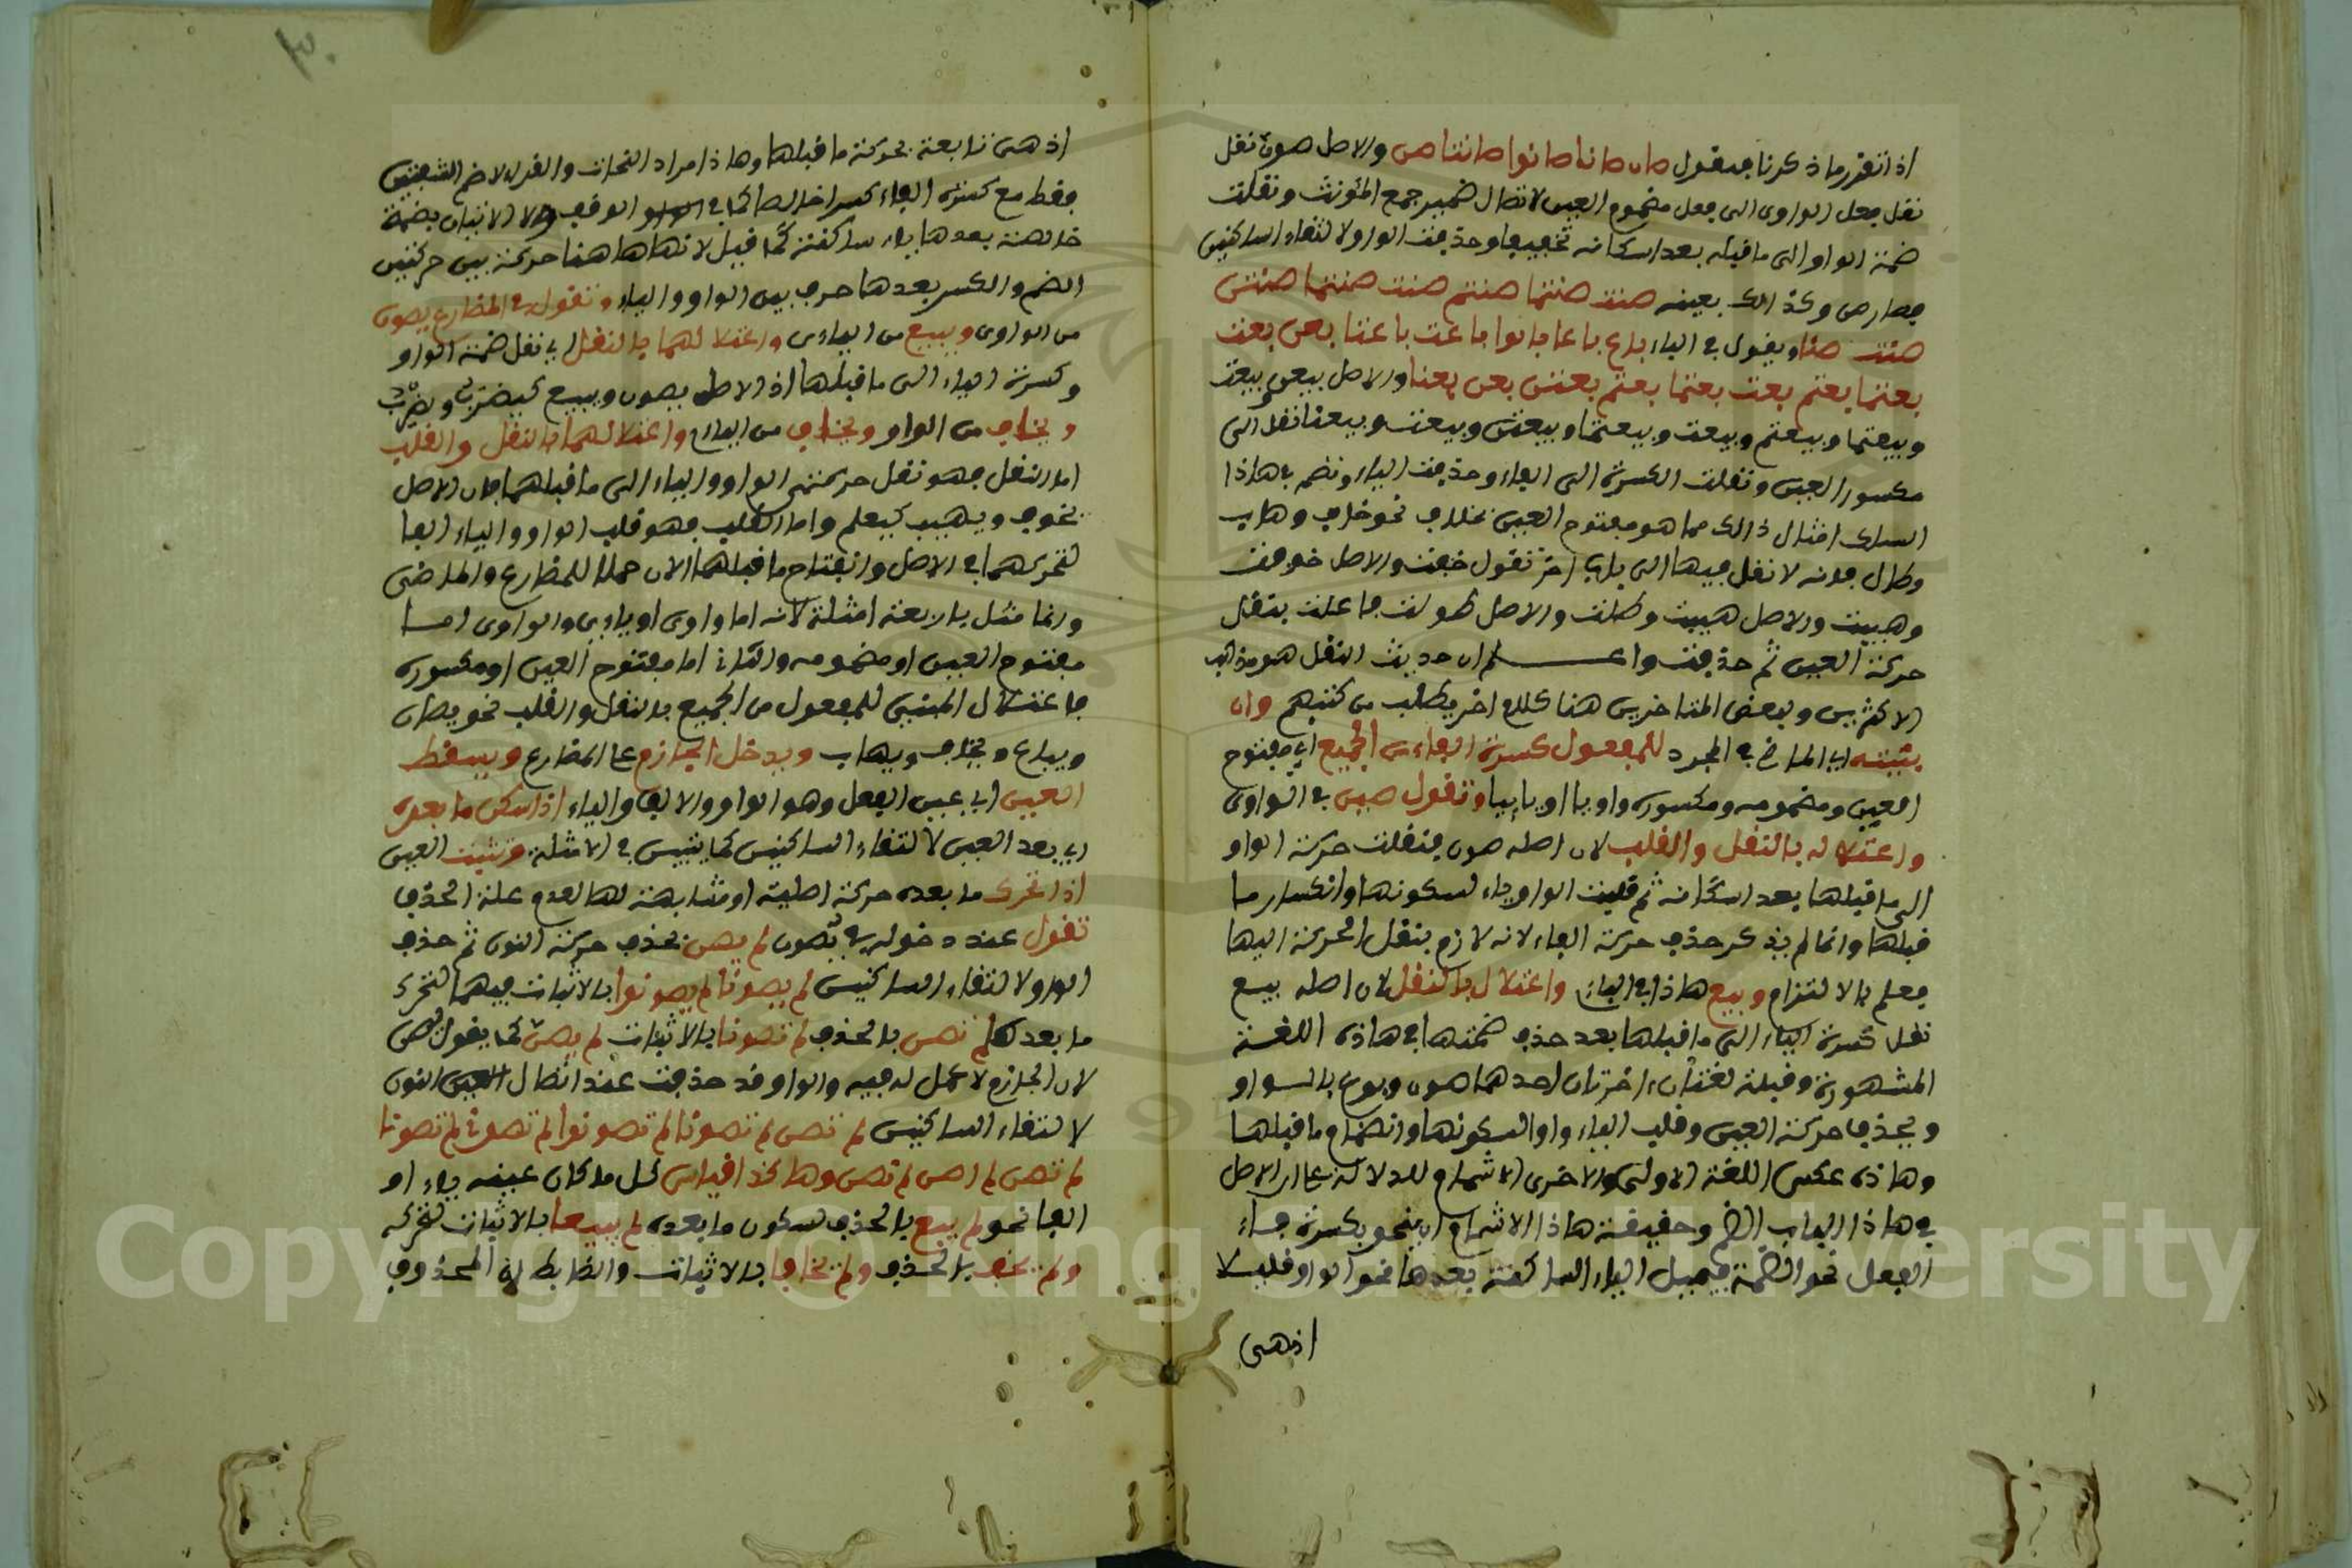 اذا تقرر ما ذكرنا فنقول صان صانا صانوا صانتا صن والاصل صون نقل
نقل فعل الواوى الى فعل مضموم العين لاتصال ضمير جمع المؤنث ونقلت
ضمة الواو الى ما قبله بعد اسكانه تخفيفا وحذفت الواو لالتقاء الساكنين
فصار صن وكذالك بعينه صنت صنتما صنتم صنت صنتما صنتن
صنت صنا ويقول فى الياء باع باعا باعوا باعت باعتا بعن بعت
بعتما بعتم بعت بعتما بعتم بعتن بعن بعنا والاصل بيعن بيعت
وبيعتما وبيعتم وبيعت وبيعتما وبيعتن وبيعت وبيعنا نقل الى
مكسور العين ونقلت الكسرة الى الفاء وحذفت الياء ونضم فى هاذا
السلك امثال ذالك مما هو مفتوح العين بخلاف نحو خاف وهاب
وطال فانه لا نقل فيها الى باب اخر تقول خفت والاصل خوفت
وهبت والاصل هيبت وطلت والاصل طولت فاعلت بنقل
حركة العين ثم حذفت واعلم ان حديث النقل هو مذهب
الاكثرين وبعض المتاخرين هنا كلام اخر يطلب من كتبهم وان
بنيته اي الماضى المجرد للمفعول كسرة الفاء من الجميع اي مفتوح
العين ومضمومه ومكسوره واويا او يائيا وتقول صين فى الواوى
واعتلاله بالنقل والقلب لان اصله صون فنقلت حركة الواو
الى ما قبلها بعد اسكانه ثم قلبت الواو ياء لسكونها وانكسار ما
قبلها وانما لم يذكر حذف حركة الفاء لانه لازم بنقل الحركة اليها
فعلم بالالتزام وبيع هاذا فى الياء واعتلال بالنقل لان اصله بيع
نقل كسرة الياء الى ما قبلها بعد حذف ضمتها فى هاذه اللغة
المشهورة وفيلة لغتان اخرتان احدهما صون وبوع بالواو
ويحذف حركة العين وقلب الياء واوا لسكونها وانضمام ما قبلها
وهاذه عكس اللغة الاولى والاخرى الاشمام للدلالة على ان الاصل
فى هاذا الباب الضم وحقيقة هاذا الاشمام ان ينحو بكسرة فاء
الفعل نحو الضمة فيميل الياء الساكنة بعدها نحو الواو قليلا
اذ هى
اذ هى تابعة لحركة ما قبلها وهاذا مراد النحات والقراء لا ضم الشفتين
فقط مع كسرة الفاء كسرا خالصا كما فى الوقف ولا الاتيان بضمة
خالصة بعدها ياء ساكنة كما قيل لانها هاهنا حركة بين حركتين
الضم والكسر بعدها حرف بين الواو والياء وتقول فى المضارع يصون
من الواوى ويبيع من اليائى واعتلالهما بالنقل اي نقل ضمة الواو
وكسرة الياء الى ما قبلها اذ الاصل يصون ويبيع كينصر ويضرب
ويخاف من الواو ويخاف من الياء واعتلالهما بالنقل والقلب
اما النقل فهو نقل حركتى الواو والياء الى ما قبلهما فان الاصل
يخوف ويهيب كيعلم واما القلب فهو قلب الواو والياء الفا
لتحركهما فى الاصل وانفتاح ما قبلهما الان حملا للمضارع والماضى
وانما مثل بالاربعة امثلة لانه اما واوى او يائى والواوى اما
مفتوح العين او مضمومه والثانى اما مفتوح العين او مكسوره
فاعتلال المبنى للمفعول من الجميع بالنقل والقلب نحو يصان
ويباع ويخاف ويهاب ويدخل الجازم على المضارع ويسقط
العين اي عين الفعل وهو الواو والالف والياء اذا سكن ما بعده
اي بعد العين لالتقاء الساكنين كما يتبين فى الامثلة وتثبت العين
اذا تحرك ما بعده حركة اصلية او مشابهة لها لعدم علة الحذف
تقول عند دخوله فى يصون لم يصن بحذف حركة النون ثم حذف
الواو لالتقاء الساكنين لم يصونا لم يصونوا بالاثبات فيهما لتحرك
ما بعدها لم تصن بالحذف لم تصونا بالاثبات لم يصن كما يقول يصن
لان الجازم لا عمل له فيه والواو قد حذفت عند اتصال النون
لالتقاء الساكنين لم تصن لم تصونا لم تصونوا لم تصونى لم تصونا
لم تصن لم اصن لم نصن وهاكذا قياس كل ما كان عينه ياء او
الفا نحو لم يبع بالحذف لسكون ما بعده لم يبيعا بالاثبات لتحركه
ولم يخف بالحذف ولم يخافا بالاثبات والضابط ان المحذوف
Copyright © King Saud University